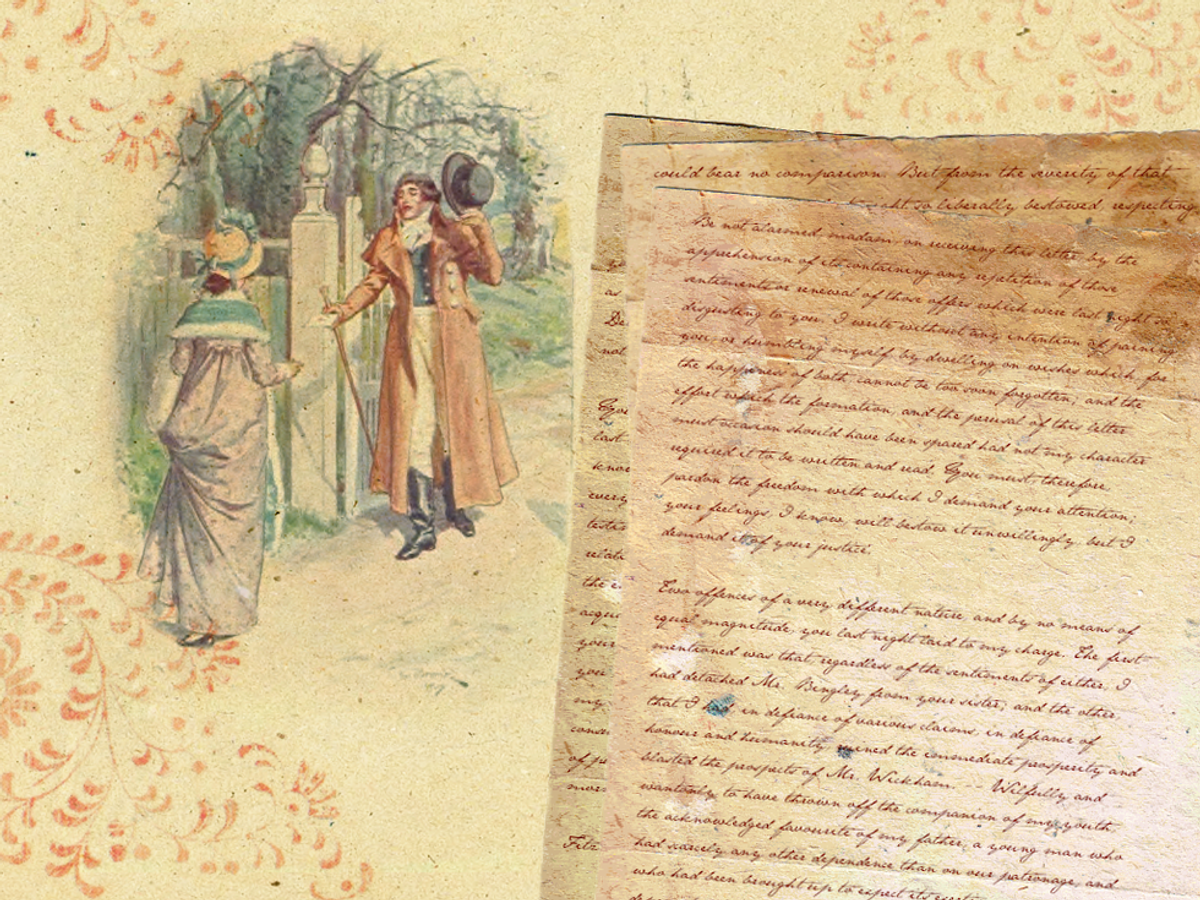 could bear no comparison. But from the severity of that
so liberally bestowed, respecting
Be not alarmed, madam, on receiving this letter, by the
apprehension of its containing any repetition of those
sentiments or renewal of those offers which were last night so
disgusting to you. I write without any intention of paining
you, or humbling myself, by dwelling on wishes which, for
the happiness of both, cannot be too soon forgotten; and the
effort which the formation, and the perusal of this letter
must occasion should have been spared had not my character
required it to be written and read. You must, therefore,
pardon the freedom with which I demand your attention;
your feelings, I know, will bestow it unwillingly, but I
demand it of your justice.
Two offences of a very different nature, and by no means of
equal magnitude, you last night laid to my charge. The first
mentioned was that, regardless of the sentiments of either, I
had detached Mr. Bingley from your sister; and the other,
that I had, in defiance of various claims, in defiance of
honour and humanity, ruined the immediate prosperity and
blasted the prospects of Mr. Wickham. -- Wilfully and
wantonly to have thrown off the companion of my youth,
the acknowledged favourite of my father, a young man who
had scarcely any other dependence than on our patronage, and
who had been brought up to expect its
as
not
last
every
the
your
my
of
Fitz